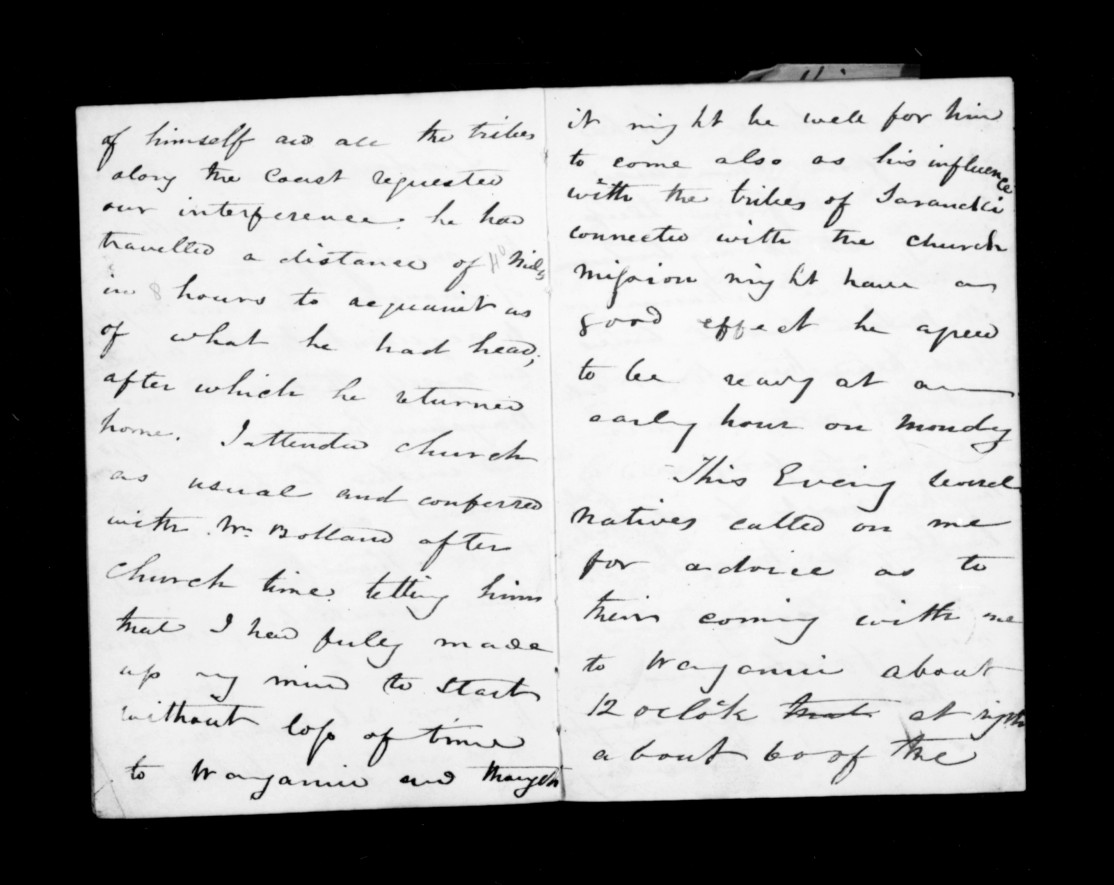 of himself and all the tribes
along the Coast requested
our interference. he had
travelled a distance of 40 Miles
in 8 hours to acquaint us
of what he had head,
after which he returned
home. I attended church
as usual and conferred
with Mr. Bolland after
church time. telling him
that I had fully made
up my mind to start
without loss of time
to Wanganui and thought
it might be well for him
to come also as his influence
with the tribes of Taranaki
connected with the church
mission might have a
good effect he agreed
to be ready at an
early hour on Monday
This Evening several
natives called on me
for advice as to
their coming with me
to Wanganui about
12 oclok that at night
about 60 of the